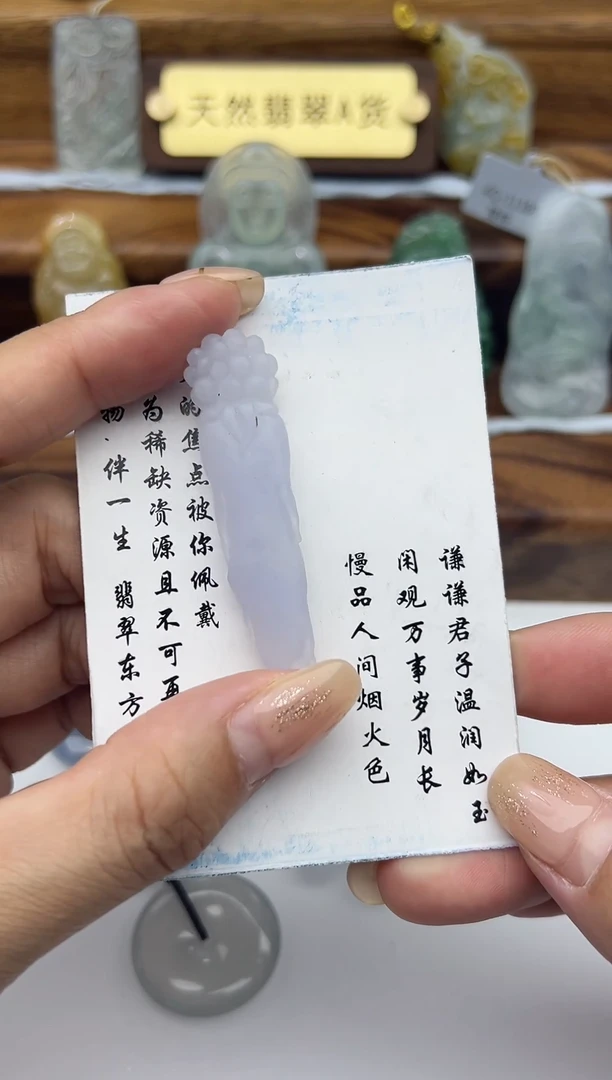 天然翡翠A货
谦谦君子温润如玉
闲观万事岁月长
慢品人间烟火色
的焦点被你佩戴
为稀缺资源且不可再
物、伴一生 翡翠东方